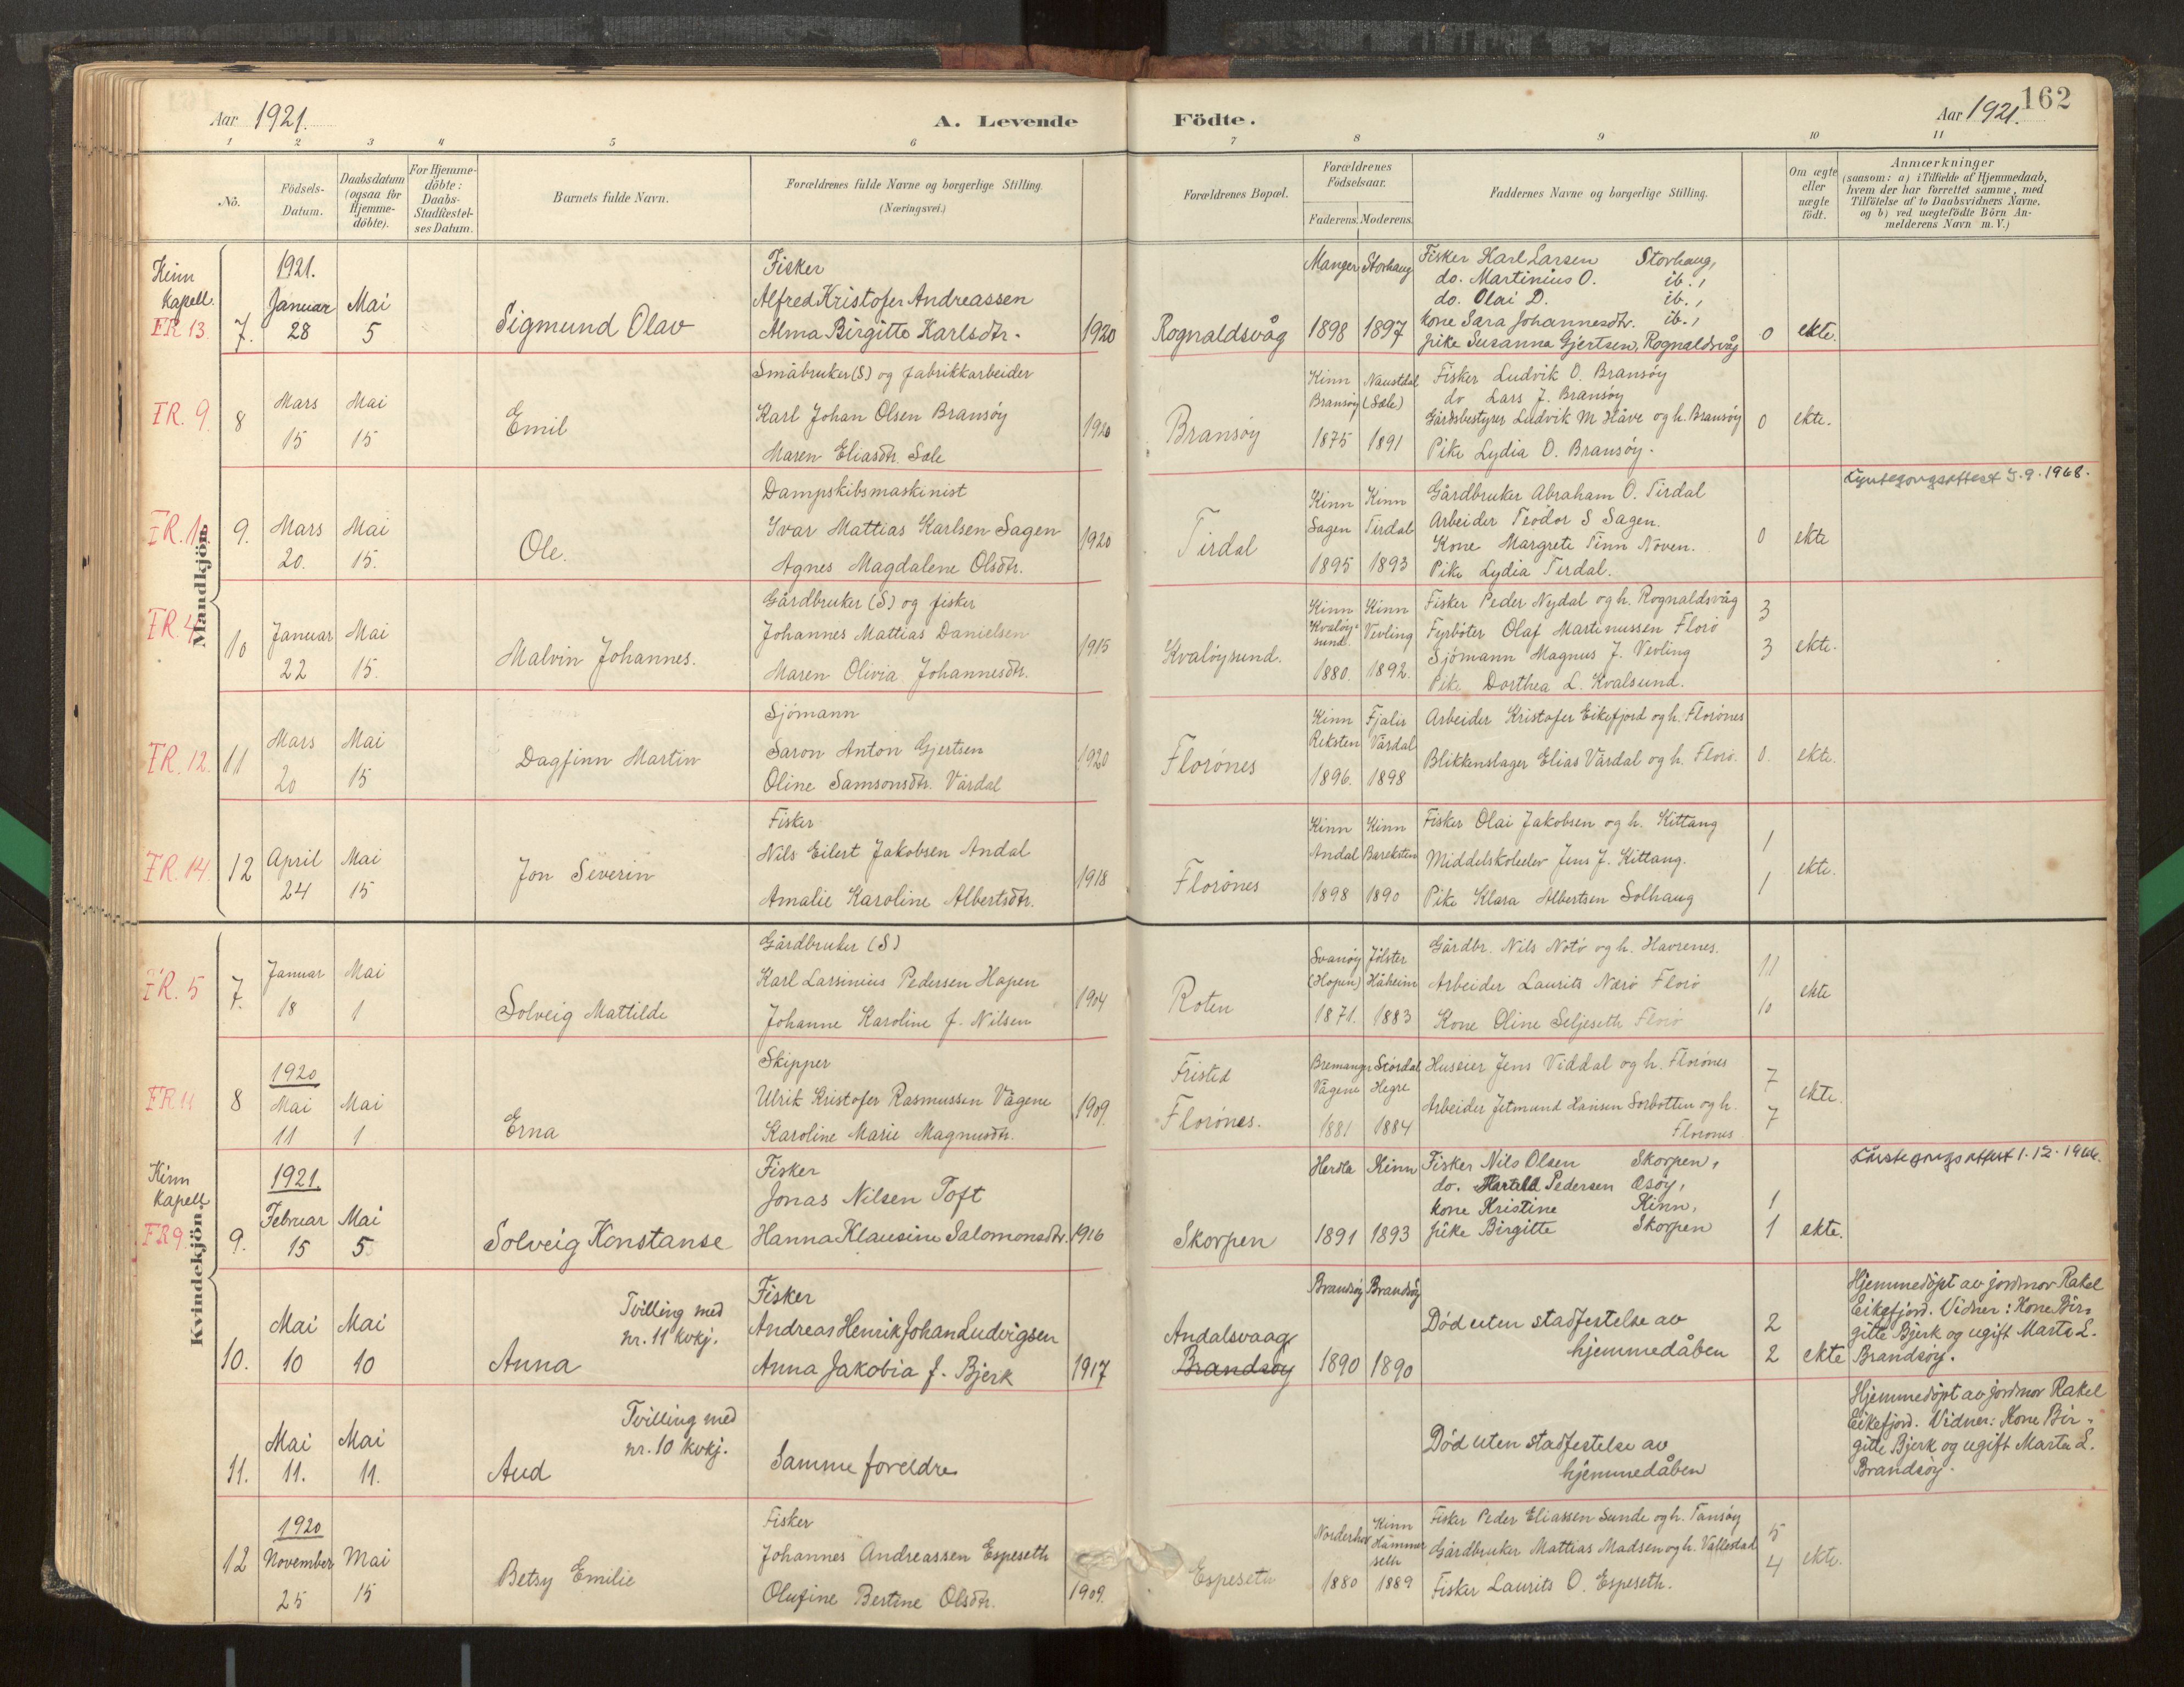 Aar 1921.
A. Levende Födte.
Aar 1921.
162
1 2 3 4 5 6 7 8 9 10 11
No.
Födsels-Datum.
Daabsdatum (ogsaa for Hjemme-döbte).
For Hjemme-döbte: Daabs-Stadfæstel-ses Datum.
Barnets fulde Navn.
Forældrenes fulde Navne og borgerlige Stilling.
(Næringsvei.)
Forældrenes Bopæl.
Forældrenes Födselsaar.
Faderens. Moderens.
Faddernes Navne og borgerlige Stilling.
Om ægte eller uægte födt.
Anmærkninger
(saasom: a) i Tilfælde af Hjemmedaab,
hvem der har forrettet samme, med
Tilföielse af to Daabsvidners Navne.
og b) ved uægtefödte Börn An-
melderens Navn m. V.)
Mandkjön
Kinn Kapell.
FR 13
7.
1921. Januar 28
Mai 5
Sigmund Olav
Fisker
Alfred Kristofer Andreassen
Alma Birgitte Karlsdtr.
1920
Rognaldsvåg
Manger 1898
Storhaug 1897
Fisker Karl Larsen Storhaug,
do. Martinius O. ib.,
do. Olai D. ib.,
kone Sara Johannesdtr. ib.,
pike Susanna Gjertsen, Rognaldsvåg
0
ekte.
FR. 9
8
Mars 15
Mai 15
Emil
Småbruker (S) og fabrikkarbeider
Karl Johan Olsen Bransøy
Maren Eliasdtr. Sæle
1920
Bransøy
Kinn Bransøy 1875
Naustdal (Sæle) 1891
Fisker Ludvik O. Bransøy
do Lars J. Bransøy
Gårdsbestyrer Ludvik M. Håve og h. Bransøy
Pike Lydia O. Bransøy.
0
ekte.
9.
Mars 20.
Mai 15.
Ole.
Dampskibsmaskinist
Ivar Mattias Karlsen Sagen
Agnes Magdalene Olsdtr.
1920
Tirdal
Kinn Sagen 1895
Kinn Tirdal 1893
Gårdbruker Abraham O. Tirdal
Arbeider Teodor S Sagen.
Kone Margrete Tinn Noven.
Pike Lydia Tirdal.
0
ekte
5.9.1968.
FR. 4
10
Januar 22
Mai 15.
Malvin Johannes.
Gårdbruker (S) og fisker
Johannes Mattias Danielsen
Maren Olivia Johannesdtr.
1915
Kvaløysund.
Kinn Kvaløysund. 1880.
Kinn Vevling 1892.
Fisker Peder Nydal og h. Rognaldsvåg
Fyrbøter Olaf Martinussen Florø
Sjømann Magnus J. Vevling
Pike Dorthea L. Kvalsund.
3
3
ekte.
FR. 12.
11
Mars 20
Mai 15
Dagfinn Martin
Sjømann
Saron Anton Gjertsen
Oline Samsonsdtr. Vårdal
1920
Florønes
Kinn Reksten 1896.
Fjaler Vårdal 1898
Arbeider Kristofer Eikefjord og h. Florønes
Blikkenslager Elias Vårdal og h. Florø.
0.
ekte.
FR. 14.
12
April 24
Mai 15
Jon Severin
Fisker
Nils Eilert Jakobsen Andal
Amalie Karoline Albertsdtr.
1918
Florønes
Kinn Andal 1898
Kinn Bareksten 1890
Fisker Olai Jakobsen og h. Kittang
Middelskoleelev Jens J. Kittang.
Pike Klara Albertsen Solhaug
1
1
ekte.
Kvindekjön.
FR. 5
7.
Januar 18
Mai 1
Solveig Mattilde
Gårdbruker (S)
Karl Larsinius Pedersen Hopen
Johanne Karoline f. Nilsen
1904
Roten
Svanøy (Hopen) 1871.
Jølster Håheim 1883
Gårdbr. Nils Notø og h. Havrenes.
Arbeider Laurits Nærø Florø
Kone Oline Seljeseth Florø
11
10
ekte
FR 11
8
1920 Mai 11
Mai 1
Erna
Skipper
Ulrik Kristofer Rasmussen Vågene
Karoline Marie Magnusdtr.
1909.
Fristed
Florønes.
Bremanger Vågene 1881
Stördal Hegre 1884
Huseier Jens Viddal og h. Florønes
Arbeider Jetmund Hansen Sorbotten og h.
Florønes
7
7
ekte.
Kinn Kapell
FR 9.
9.
1921. Februar 15
Mai 5
Solveig Konstanse
Fisker
Jonas Nilsen Toft
Hanna Klausine Salomonsdtr.
1916
Skorpen
Herdla 1891
Kinn 1893
Fisker Nils Olsen Skorpen,
do. Harald Pedersen Osøy,
kone Kristine Kinn,
pike Birgitte Skorpen
1
1
ekte.
1.12.1966.
10.
Mai 10
Mai 10
Anna
Tvilling med
nr. 11 kvkj.
Fisker
Andreas Henrik Johan Ludvigsen
Anna Jakobia f. Bjerk
1917
Andalsvaag
Brandsøy
Brandsøy 1890
Brandsøy 1890
Død uten stadfestelse av
hjemmedåben
2
2
ekte
Hjemmedøpt av jordmor Rakel
Eikefjord. Vidner: Kone Bir-
gitte Bjerk og ugift Marta L.
Brandsøy.
11.
Mai 11.
Mai 11.
Aud
Tvilling med
nr. 10 kvkj.
Samme foreldre
Død uten stadfestelse av
hjemmedåben
Hjemmedøpt av jordmor Rakel
Eikefjord. Vidner: Kone Bir-
gitte Bjerk og ugift Marta L.
Brandsøy.
12
1920 November 25
Mai 15
Betsy Emilie
Fisker
Johannes Andreassen Espeseth
Olufine Bertine Olsdtr.
1909.
Espeseth
Norderhov 1880
Kinn Hammerseth 1889
Fisker Peder Eliassen Sunde og h. Tansøy
Gårdbruker Mattias Madsen og h. Vallestad
Fisker Laurits O. Espeseth.
5
4
ekte.